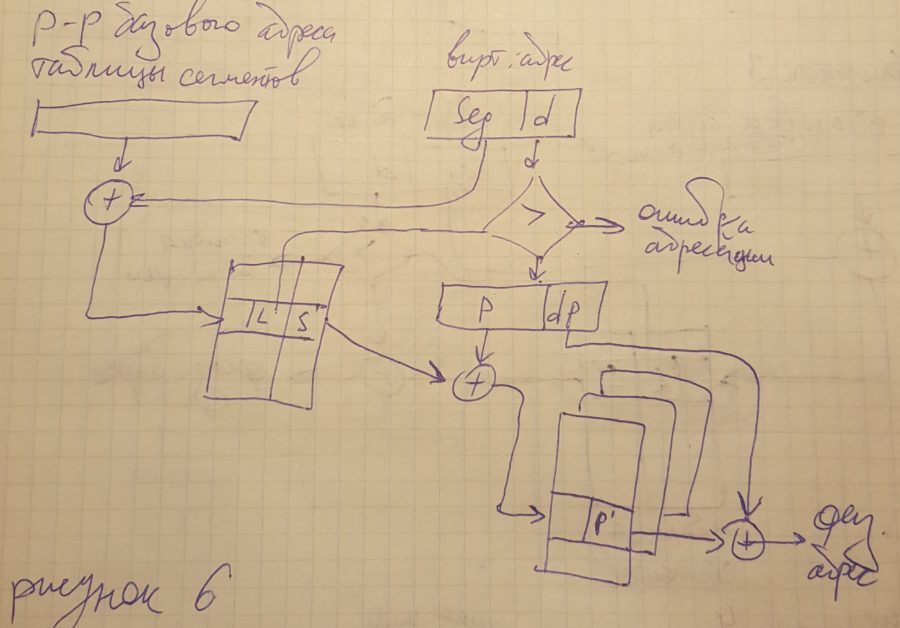 р-р базового адреса
таблицы сегментов
вирт. адрес
Seg d
+
>
ошибка
адресации
L S
P dp
+
P'
+
физ.
адрес
рисунок 6